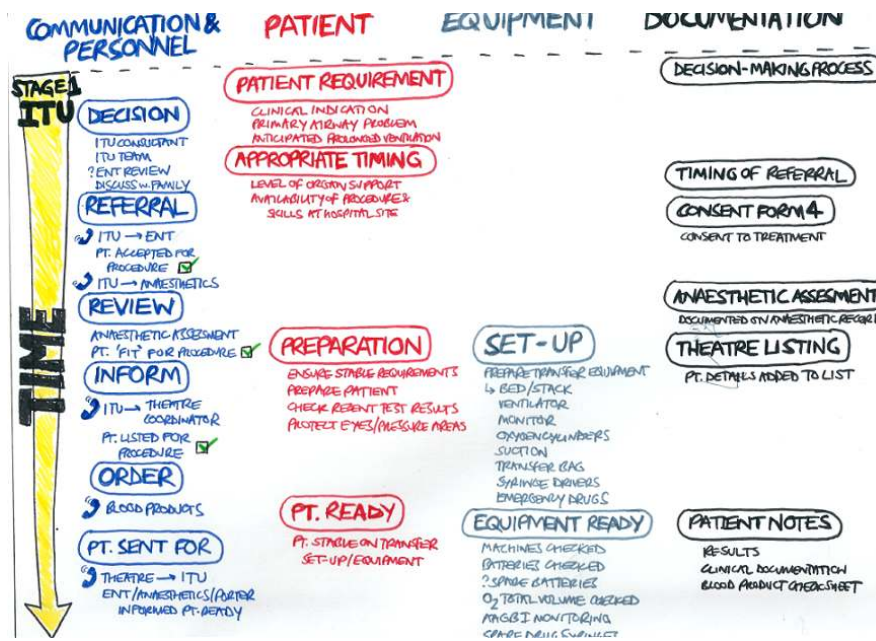 COMMUNICATION &
PERSONNEL
PATIENT
EQUIPMENT
DOCUMENTATION
STAGE 1
ITU
TIME
DECISION
ITU CONSULTANT
ITU TEAM
? ENT REVIEW
DISCUSS W. FAMILY
REFERRAL
ITU → ENT
PT. ACCEPTED FOR
PROCEDURE
ITU → ANAESTHETICS
REVIEW
ANAESTHETIC ASSESSMENT
PT. 'FIT' FOR PROCEDURE
INFORM
ITU → THEATRE
COORDINATOR
PT. LISTED FOR
PROCEDURE
ORDER
BLOOD PRODUCTS
PT. SENT FOR
THEATRE → ITU
ENT/ANAESTHETICS/PORTER
INFORMED PT. READY
PATIENT REQUIREMENT
CLINICAL INDICATION
PRIMARY AIRWAY PROBLEM
ANTICIPATED PROLONGED VENTILATION
APPROPRIATE TIMING
LEVEL OF ORGAN SUPPORT
AVAILABILITY OF PROCEDURE &
SKILLS AT HOSPITAL SITE
PREPARATION
ENSURE STABLE REQUIREMENTS
PREPARE PATIENT
CHECK RECENT TEST RESULTS
PROTECT EYES/PRESSURE AREAS
PT. READY
PT. STABLE ON TRANSFER
SET-UP/EQUIPMENT
SET-UP
PREPARE TRANSFER EQUIPMENT
↳ BED/STACK
VENTILATOR
MONITOR
OXYGEN CYLINDERS
SUCTION
TRANSFER BAG
SYRINGE DRIVERS
EMERGENCY DRUGS
EQUIPMENT READY
MACHINES CHECKED
BATTERIES CHECKED
? SPARE BATTERIES
O2 TOTAL VOLUME CHECKED
AAGBI MONITORING
SPARE DRUG SYRINGES
DECISION-MAKING PROCESS
TIMING OF REFERRAL
CONSENT FORM 4
CONSENT TO TREATMENT
ANAESTHETIC ASSESMENT
DOCUMENTED ON ANAESTHETIC RECORD
THEATRE LISTING
PT. DETAILS ADDED TO LIST
PATIENT NOTES
RESULTS
CLINICAL DOCUMENTATION
BLOOD PRODUCT CHECKSHEET